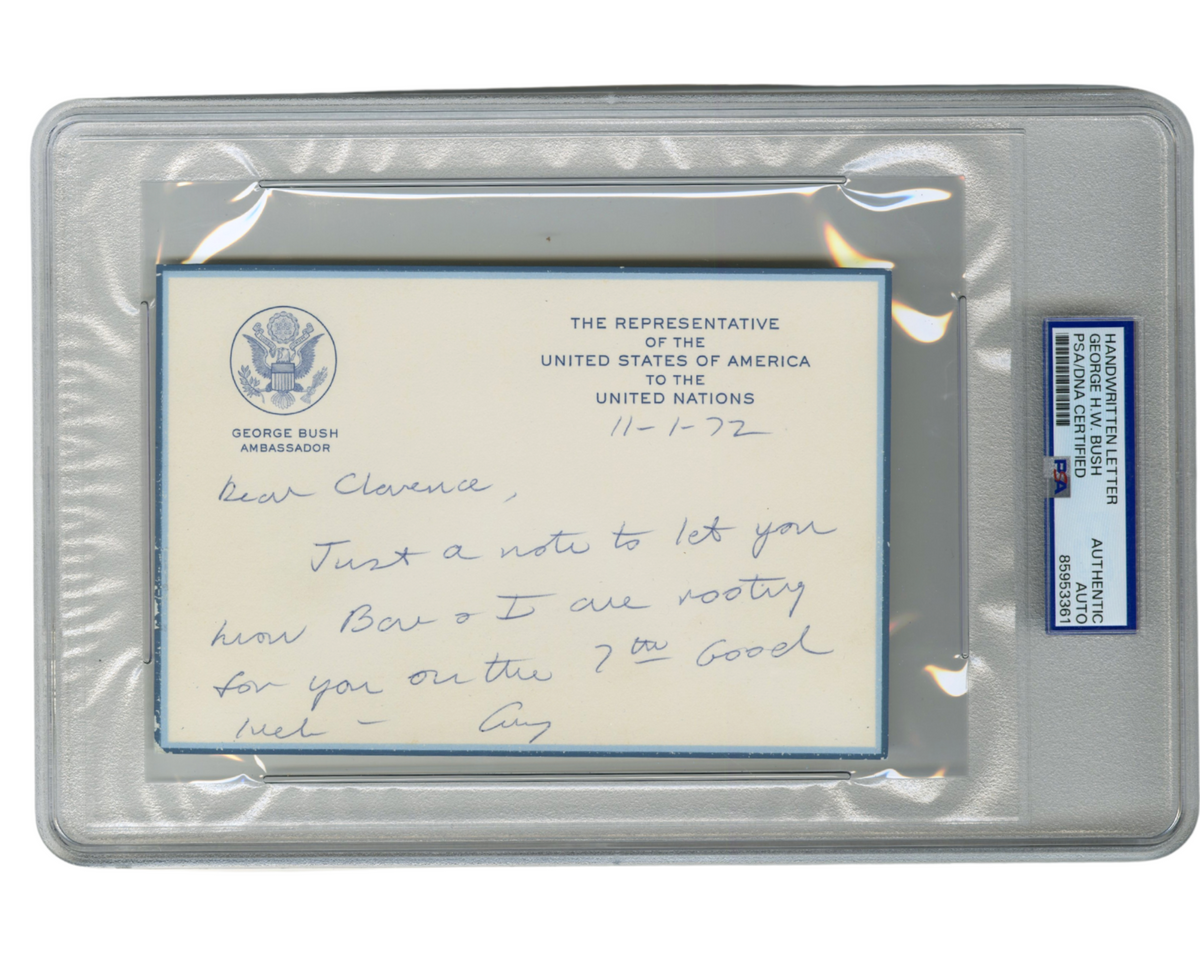 GEORGE BUSH
AMBASSADOR
THE REPRESENTATIVE
OF THE
UNITED STATES OF AMERICA
TO THE
UNITED NATIONS
11-1-72
Dear Clarence,
Just a note to let you
know Bar & I are rooting
for you on the 7th Good
luck -
HANDWRITTEN LETTER AUTHENTIC
GEORGE H.W. BUSH AUTO
PSA/DNA CERTIFIED 85953361
PSA